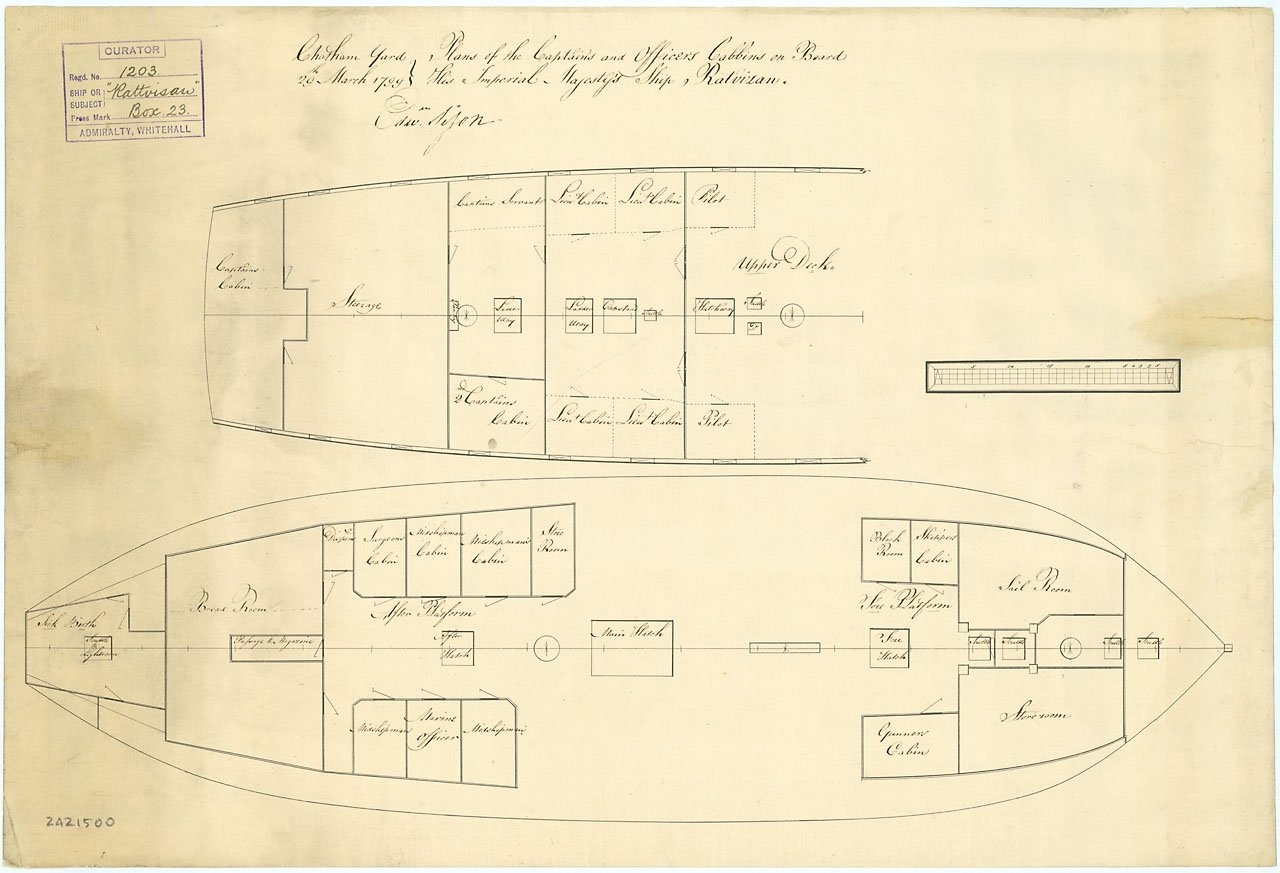 CURATOR
Regd. No. 1203.
SHIP OR SUBJECT "Rattvisan"
Press Mark Box. 23.
ADMIRALTY, WHITEHALL
Chatham Yard } Plans of the Captains and Officers Cabbins on Board
29th March 1799 } His Imperial Majesty's Ship Ratvizan.
Edwd.
Captains Cabin
Steerage
Captains Servants
Lieut Cabin
Lieut Cabin
Pilot
Upper Deck
Ladder way
Ladder way
Capstan
Scuttle
Hatchway
Scuttle
Do
2nd Captains Cabin
Lieut Cabin
Lieut Cabin
Pilot
Sick Birth
Scuttle to Lightroom
Bread Room
Passage to Magazine
Surgeons Cabin
Midshipman Cabin
Midshipman Cabin
Store Room
After Platform
After Hatch
Midshipman
Marine Officer
Midshipman
Main Hatch
Block Room
Skippers Cabin
Fore Platform
Fore Hatch
Gunners Cabin
Sail Room
Scuttle
Scuttle
Scuttle
Scuttle
Store room
ZAZ1500